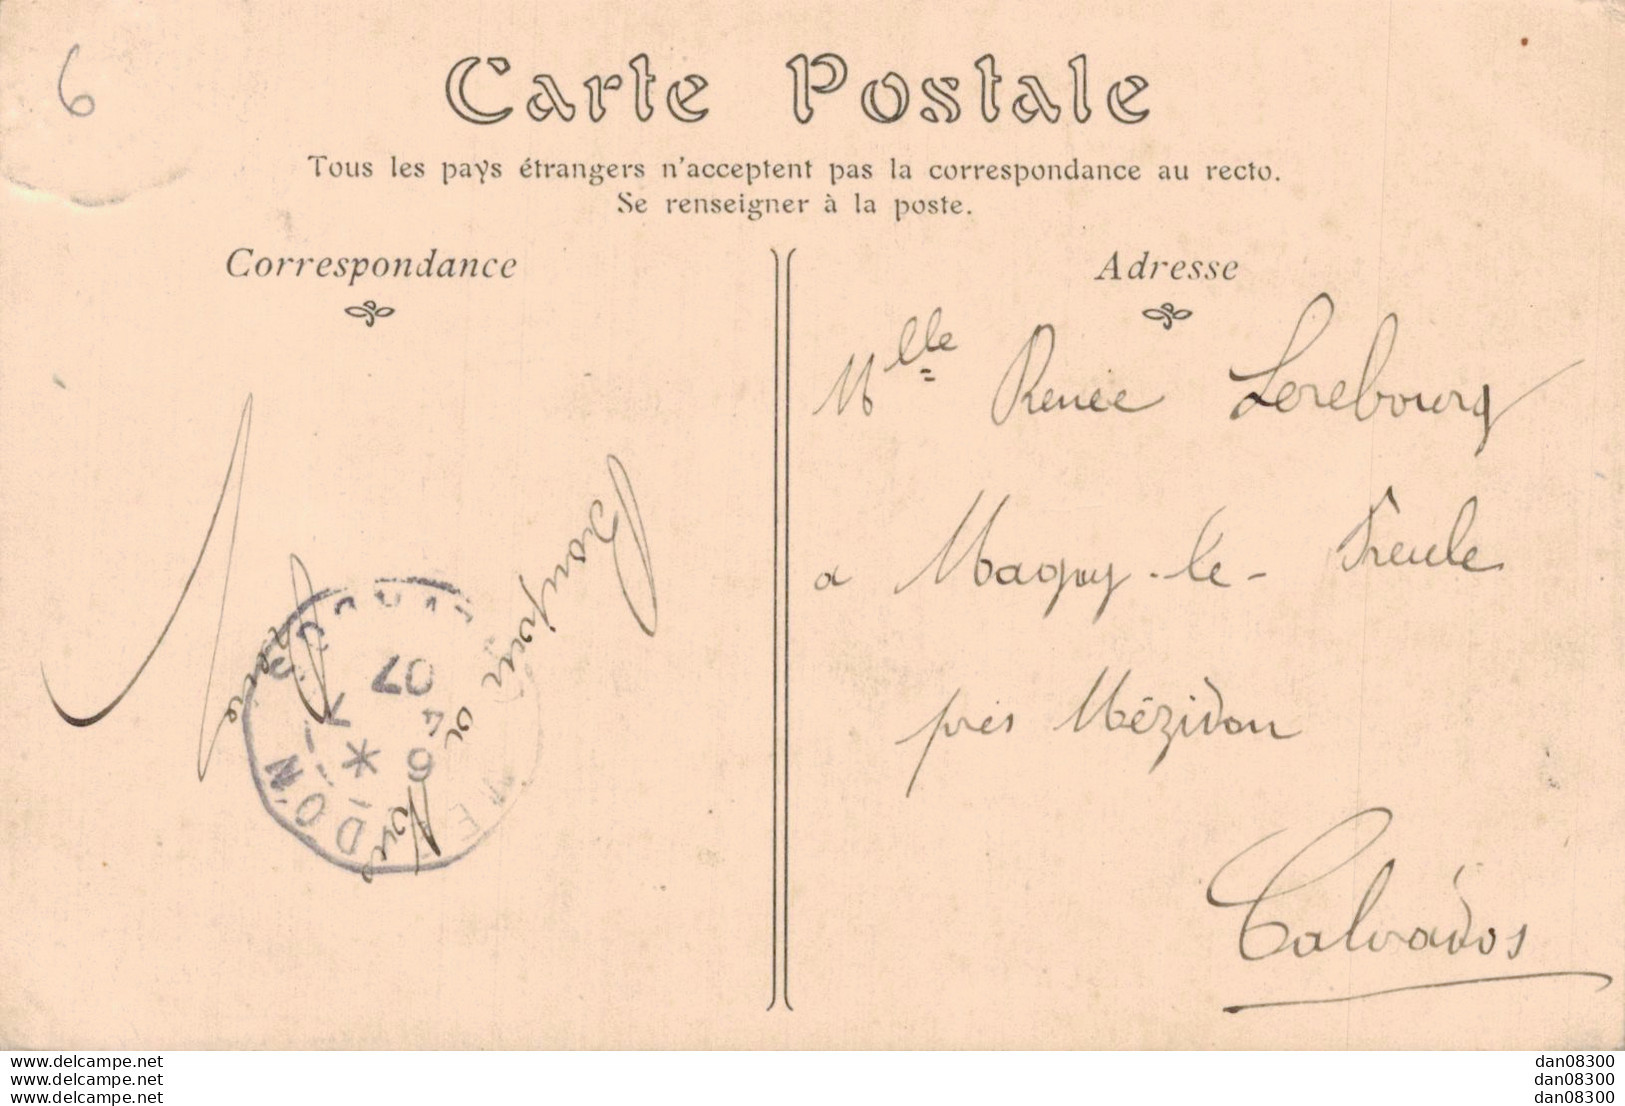 6
Carte Postale
Tous les pays étrangers n'acceptent pas la correspondance au recto.
Se renseigner à la poste.
Correspondance
Adresse
Mlle Renée Lerebourg
a Magny-le-Freule
près Mézidon
Calvados
Bonjour a
07
4
6
MEZIDON
CALVADOS
www.delcampe.net
www.delcampe.net
www.delcampe.net
dan08300
dan08300
dan08300